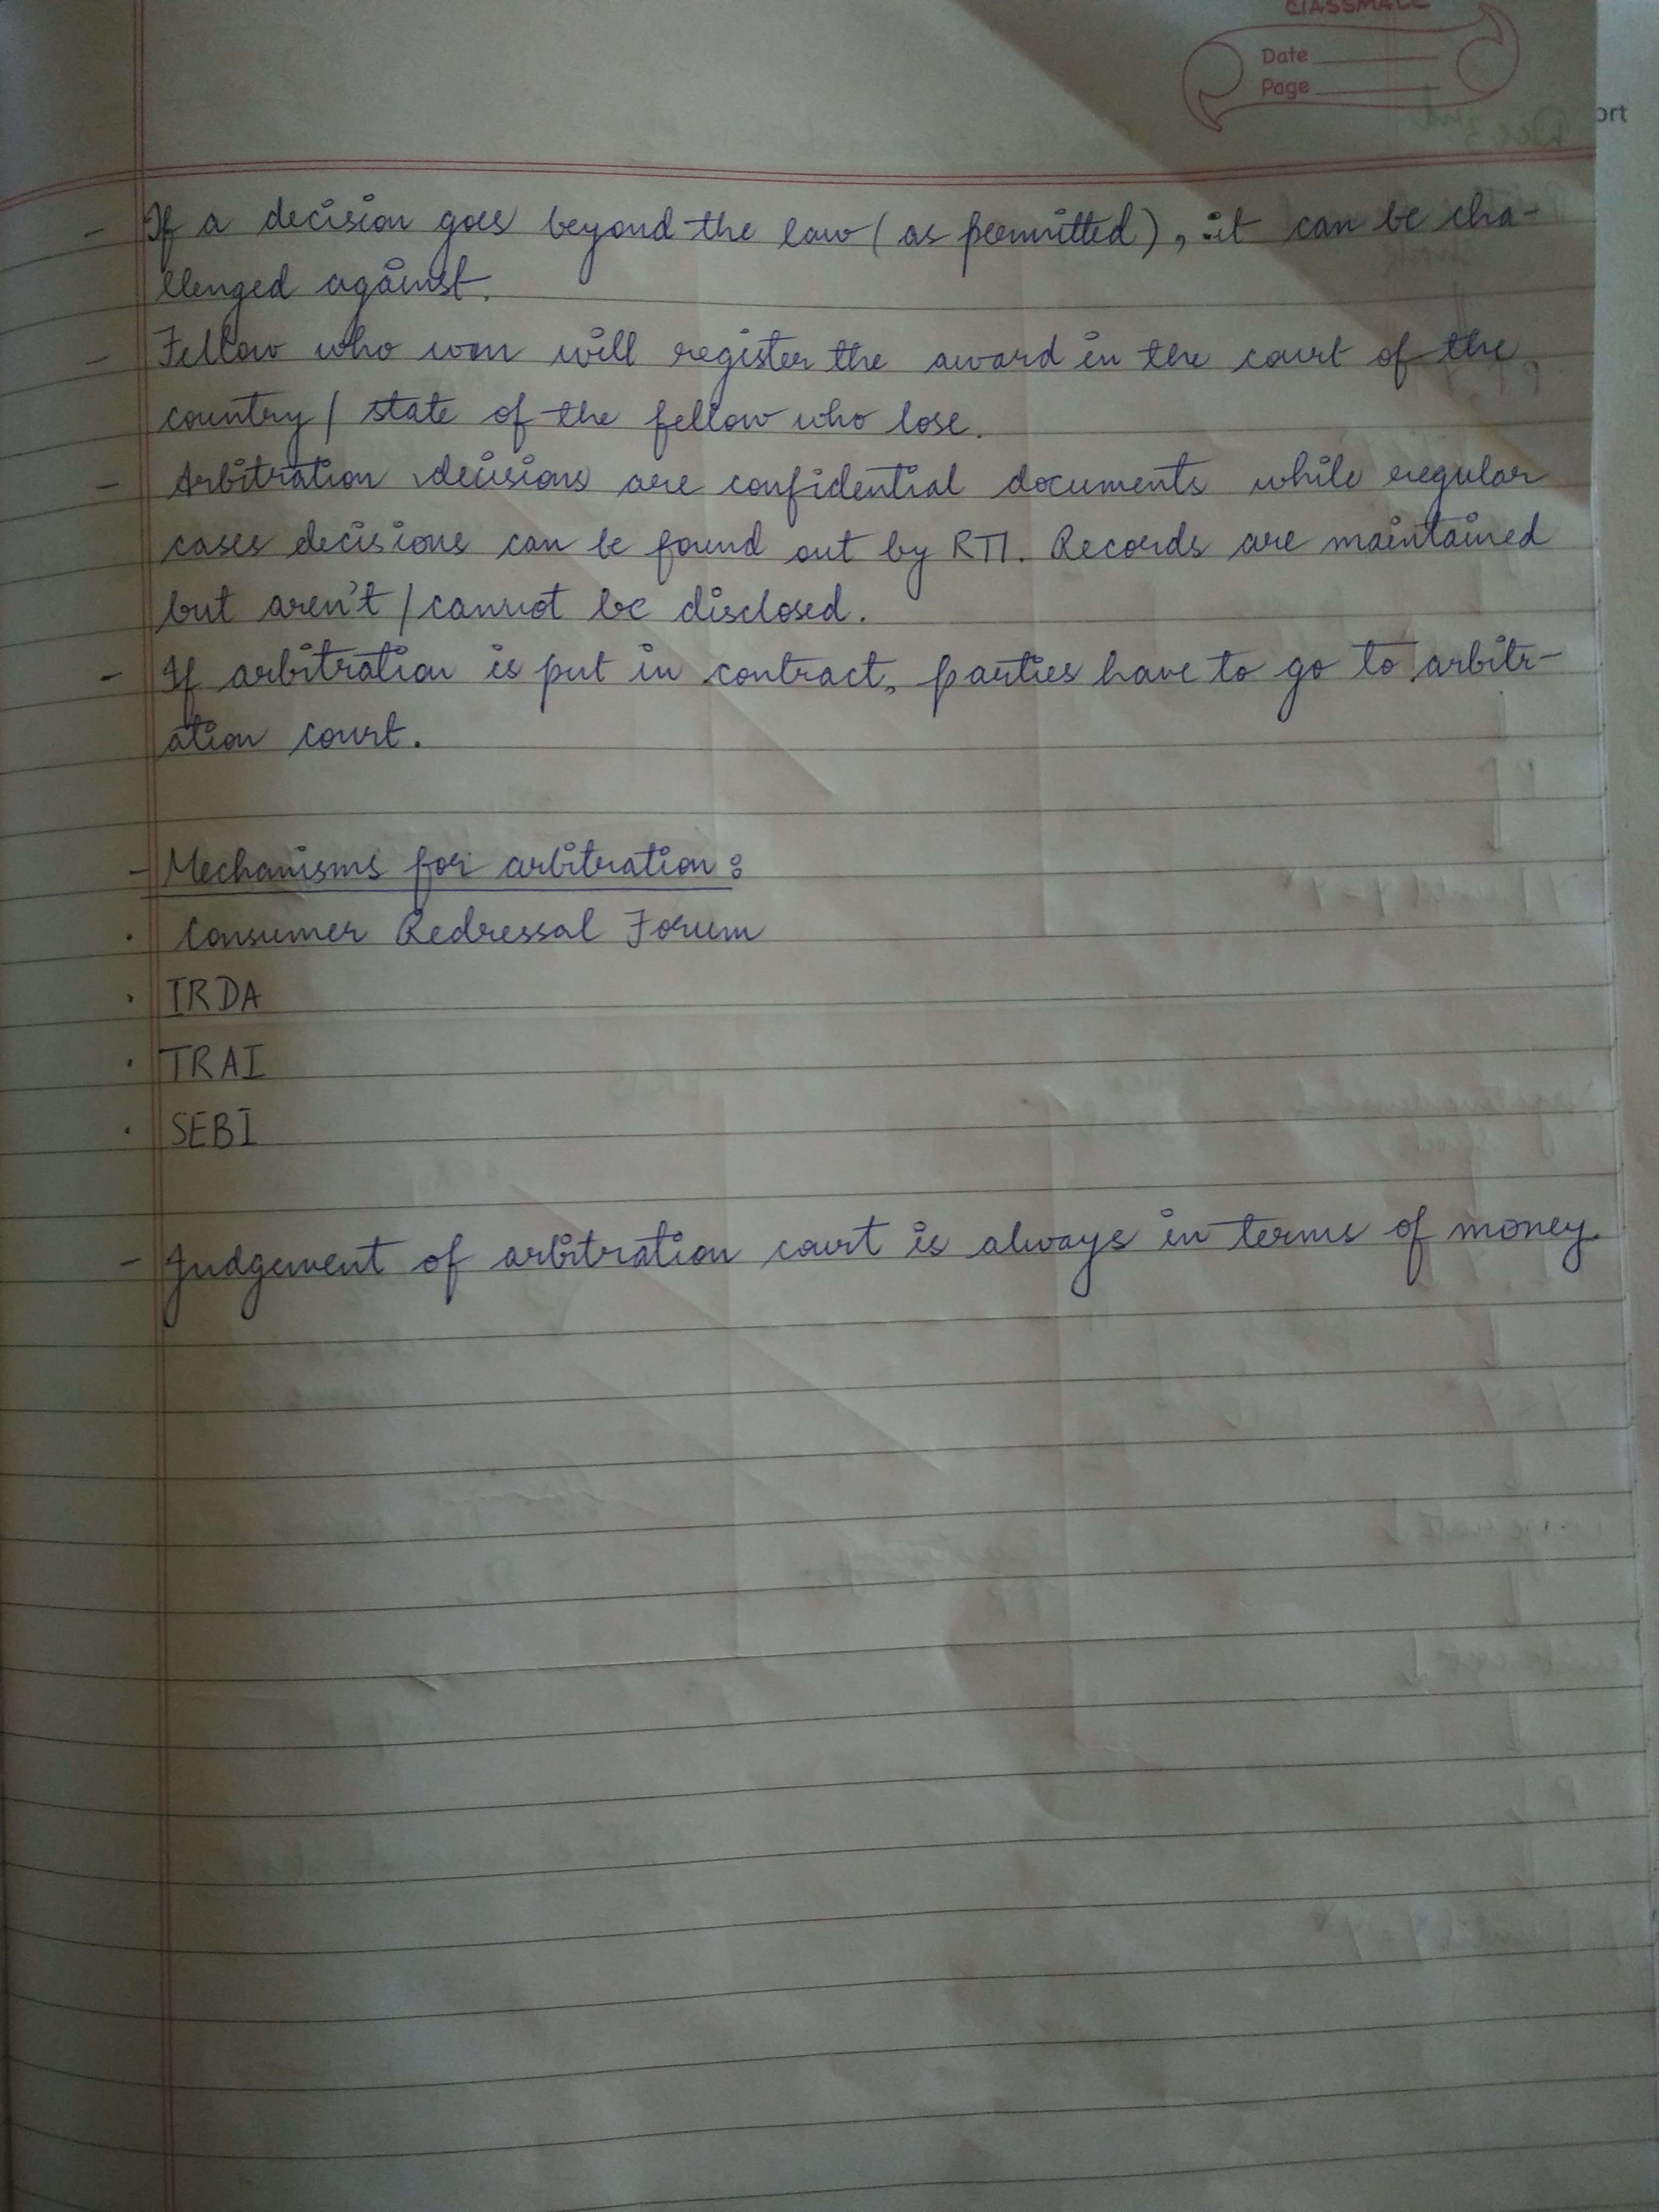 classmate
Date
Page
ort
- If a decision goes beyond the law (as permitted), it can be cha-
llenged against.
- Fellow who won will register the award in the court of the
country / state of the fellow who lose.
- Arbitration decisions are confidential documents while regular
cases decisions can be found out by RTI. Records are maintained
but aren't / cannot be disclosed.
- If arbitration is put in contract, parties have to go to arbitr-
ation court.
- Mechanisms for arbitration :
· Consumer Redressal Forum
· IRDA
· TRAI
· SEBI
- Judgement of arbitration court is always in terms of money.